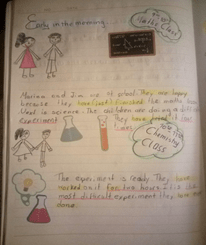 Early in the morning
Maths Class
Mariam and Jim are at school. They are happy
because they have (just) finished the maths
Next is science. The children are doing a
experiment
They have
Chemistry
CLASS
The experiment is ready. They have
worked on it for two hours. It is the
most difficult experiment they have
done.